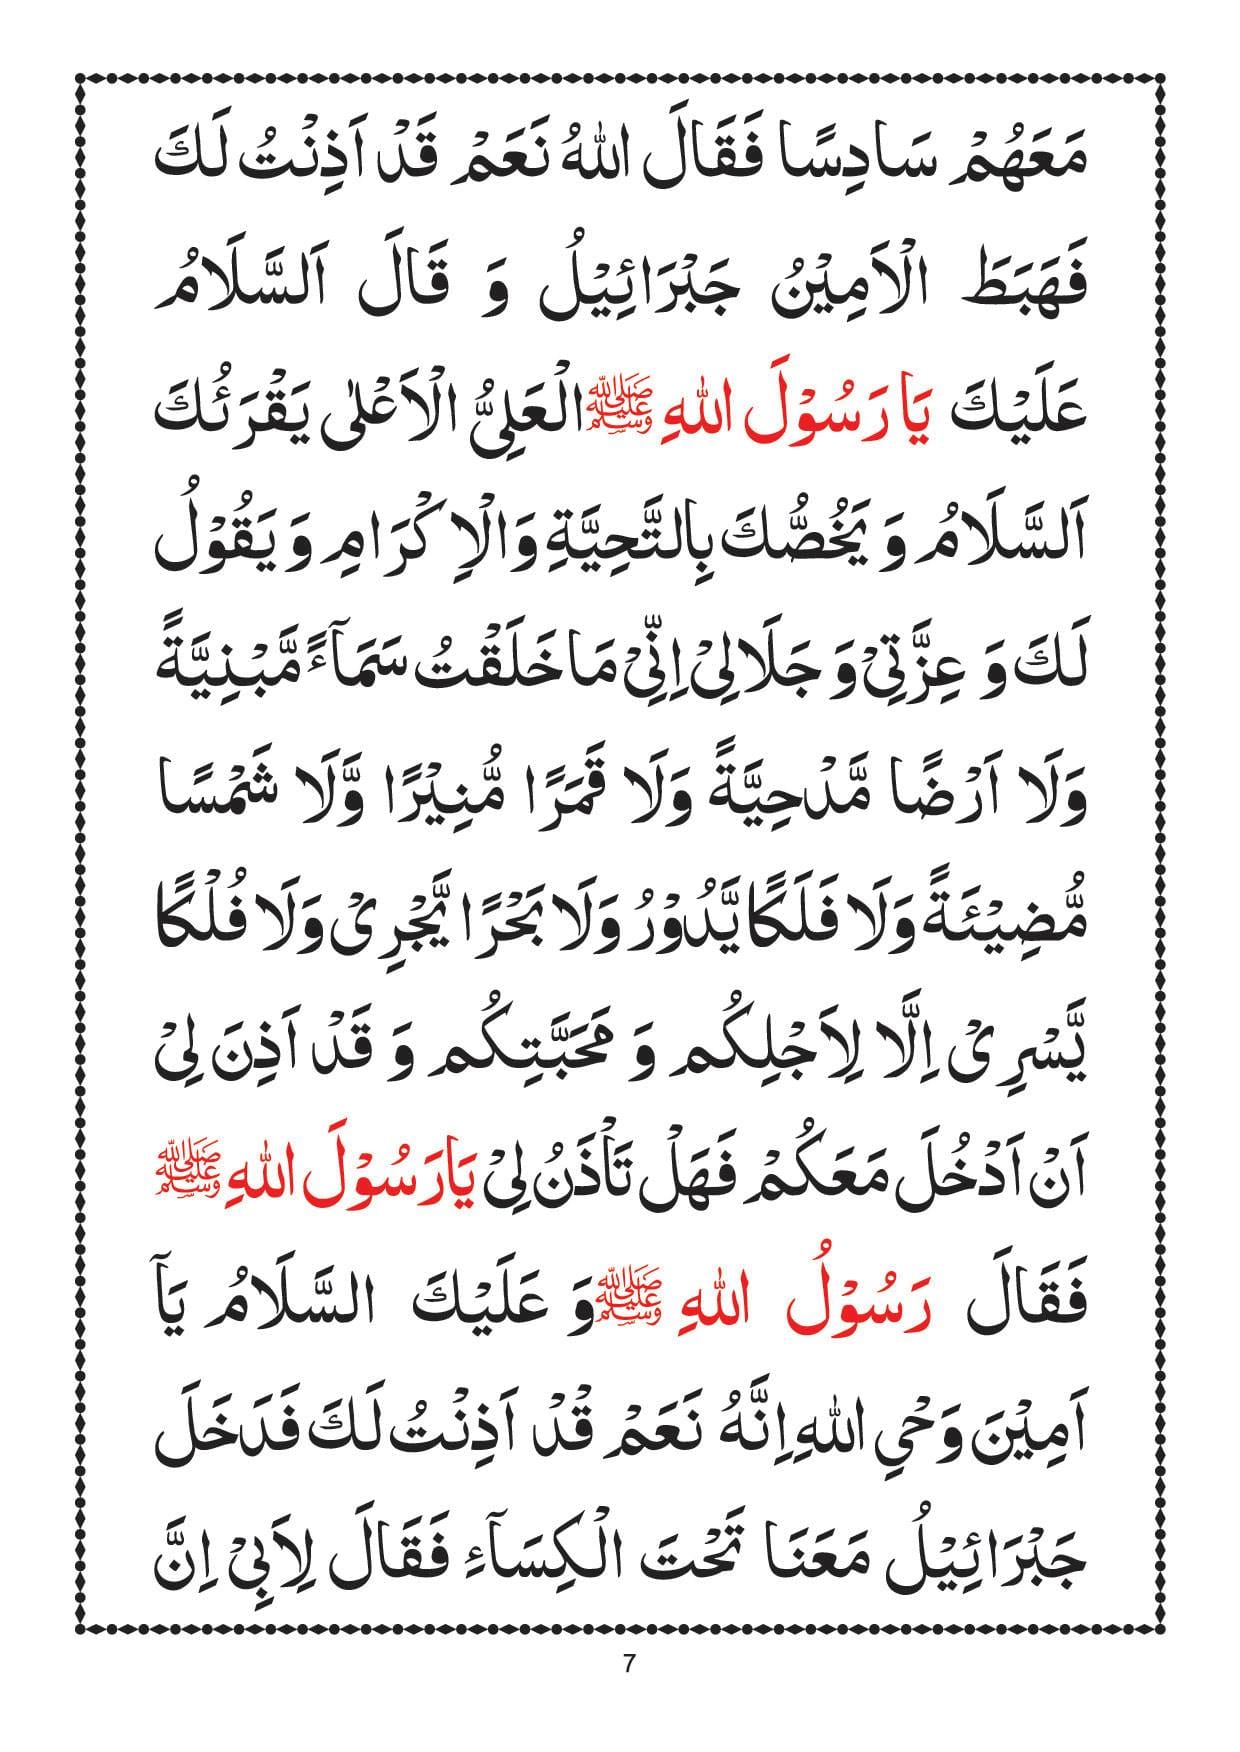 مَعَهُمْ سَادِسًا فَقَالَ اللهُ نَعَمْ قَدْ اَذِنْتُ لَكَ
فَهَبَطَ الْاَمِيْنُ جَبْرَائِيْلُ وَ قَالَ اَلسَّلَامُ
عَلَيْكَ يَا رَسُوْلَ اللهِ ﷺ الْعَلِيُّ الْاَعْلٰى يَقْرَئُكَ
اَلسَّلَامُ وَ يَخُصُّكَ بِالتَّحِيَّةِ وَالْاِكْرَامِ وَ يَقُوْلُ
لَكَ وَ عِزَّتِيْ وَ جَلَالِيْ اِنِّيْ مَا خَلَقْتُ سَمَآءً مَّبْنِيَّةً
وَلَا اَرْضًا مَّدْحِيَّةً وَلَا قَمَرًا مُّنِيْرًا وَّلَا شَمْسًا
مُّضِيْئَةً وَلَا فَلَكًا يَّدُوْرُ وَلَا بَحْرًا يَّجْرِيْ وَلَا فُلْكًا
يَّسْرِيْ اِلَّا لِاَجْلِكُم وَ مَحَبَّتِكُم وَ قَدْ اَذِنَ لِيْ
اَنْ اَدْخُلَ مَعَكُمْ فَهَلْ تَاْذَنُ لِيْ يَارَسُوْلَ اللهِ ﷺ
فَقَالَ رَسُوْلُ اللهِ ﷺ وَ عَلَيْكَ السَّلَامُ يَآ
اَمِيْنَ وَحْيِ اللهِ اِنَّهُ نَعَمْ قُدْ اَذِنْتُ لَكَ فَدَخَلَ
جَبْرَائِيْلُ مَعَنَا تَحْتَ الْكِسَآءِ فَقَالَ لِاَبِيْ اِنَّ
7